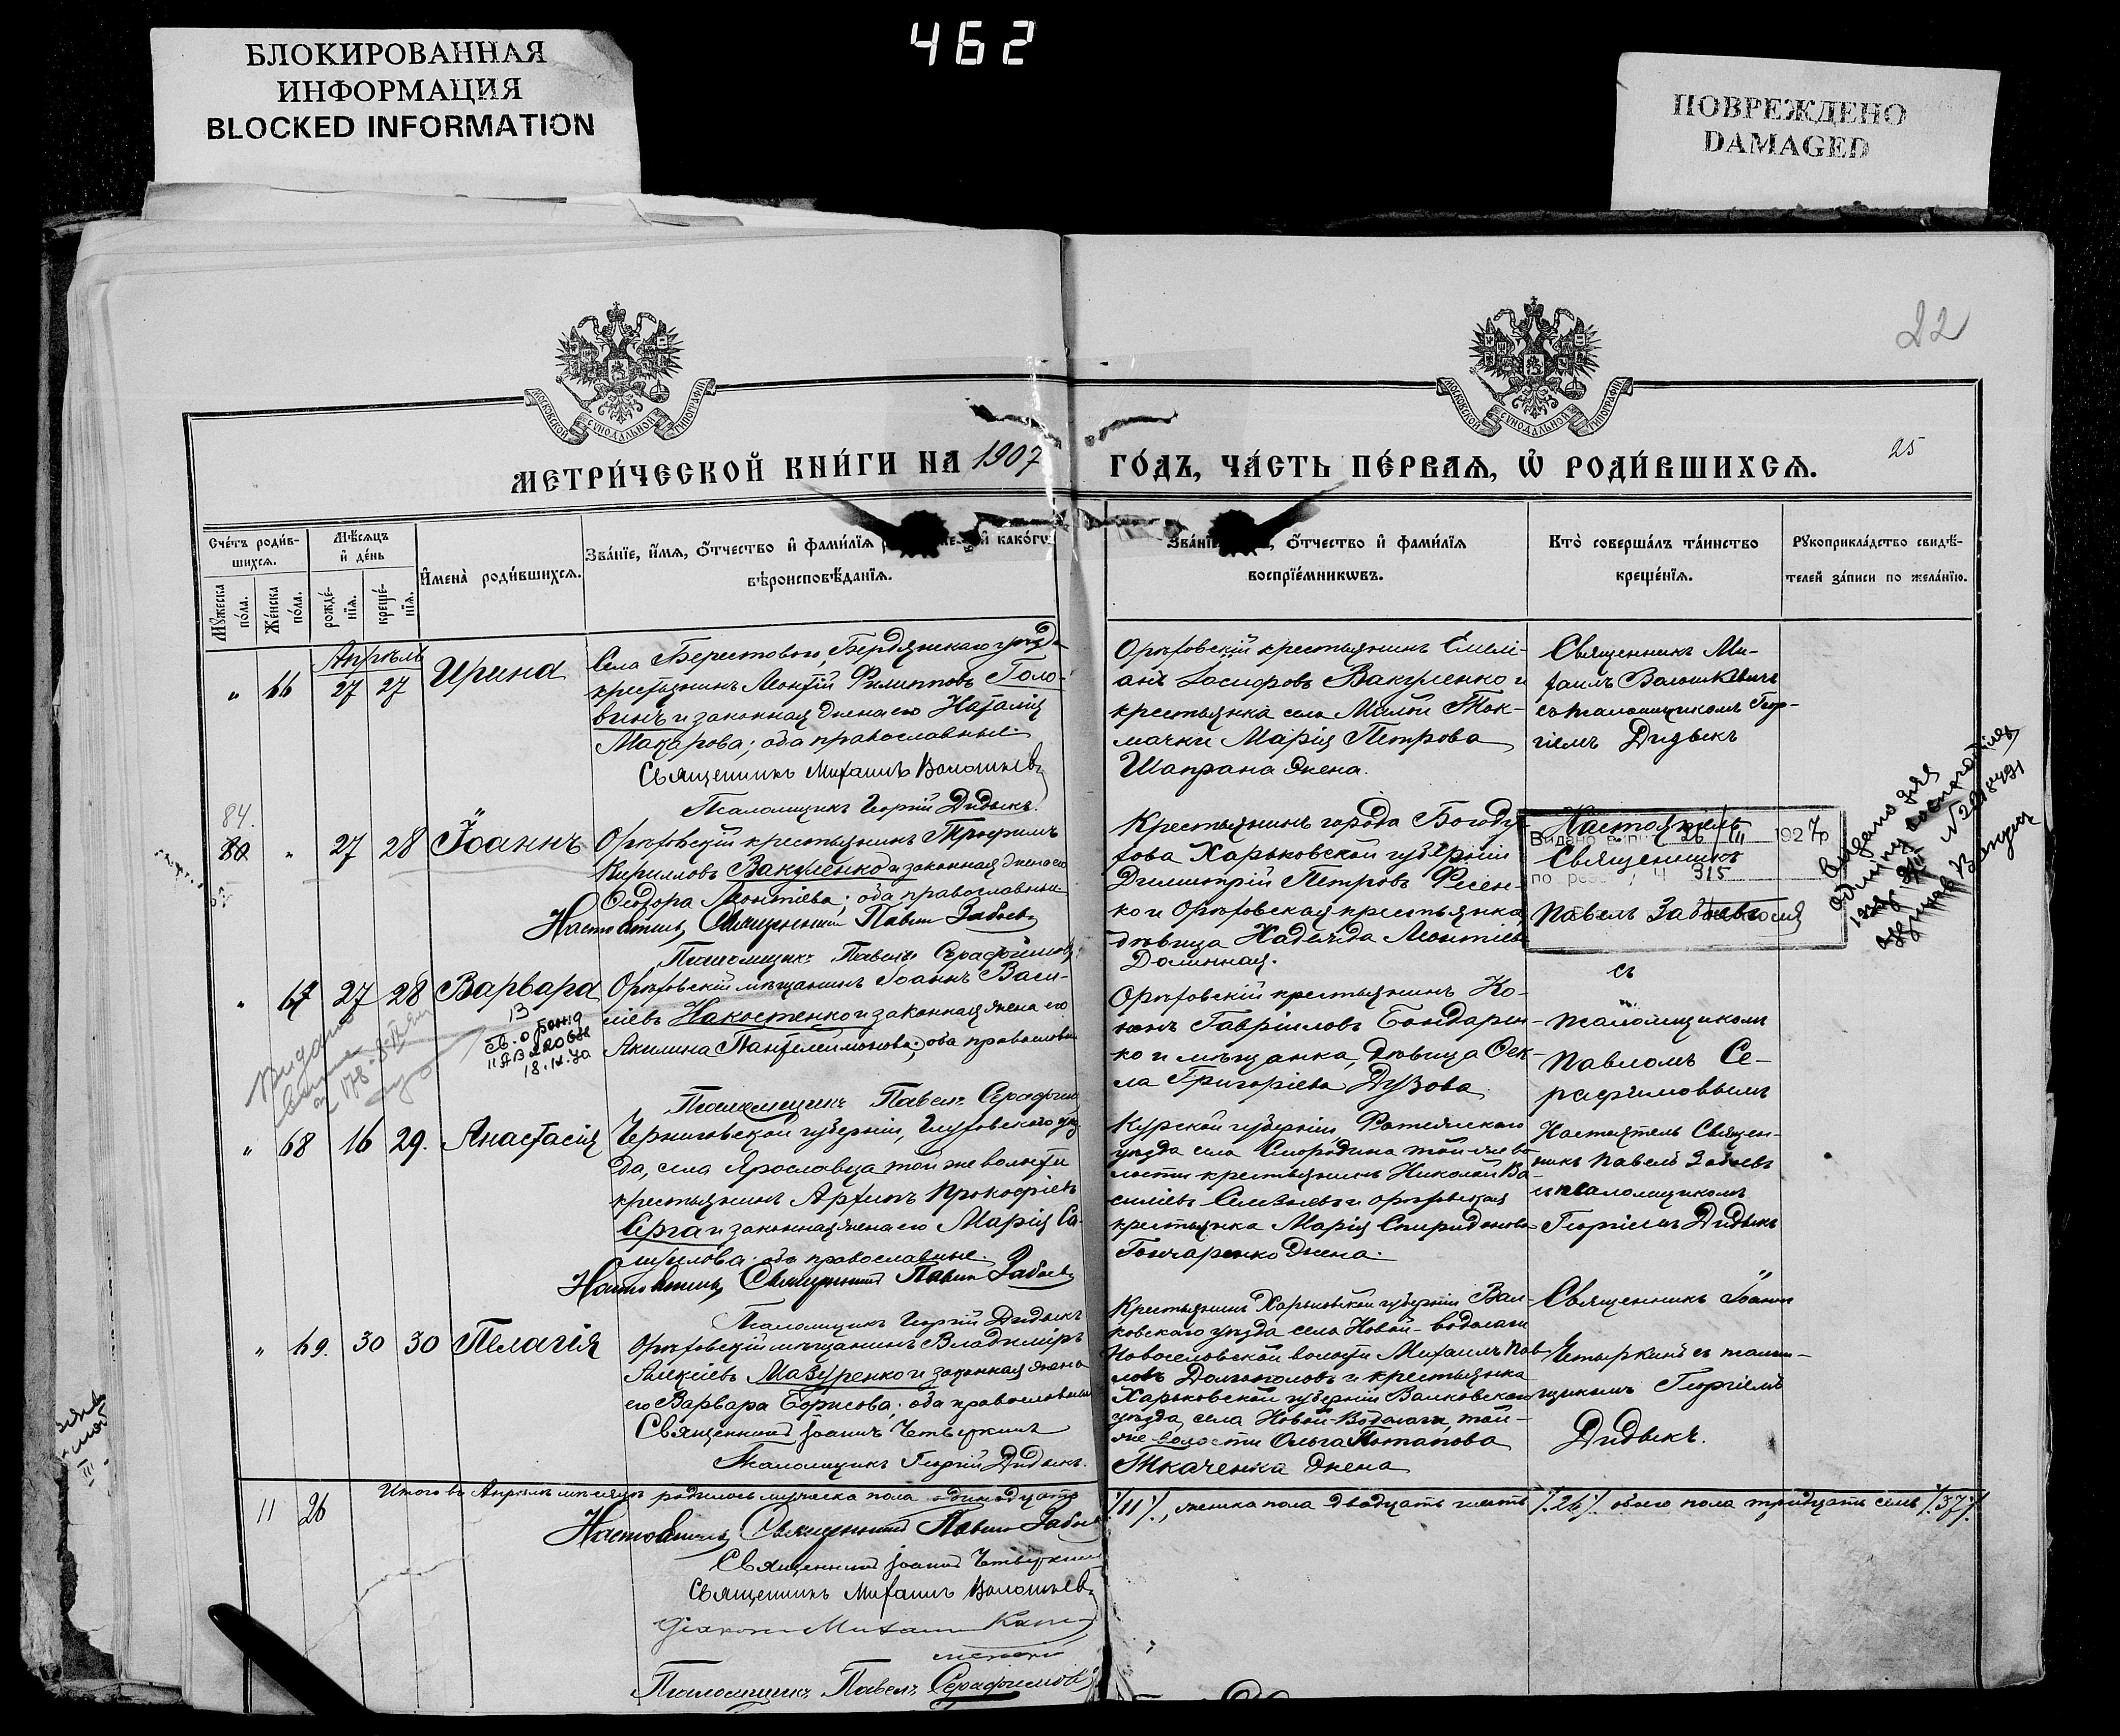 БЛОКИРОВАННАЯ
ИНФОРМАЦИЯ
BLOCKED INFORMATION
462
ПОВРЕЖДЕНО
DAMAGED
22
МОСКОВСКОЙ СУНОДАЛЬНОЙ ТИПОГРАФІИ
МОСКОВСКОЙ СУНОДАЛЬНОЙ ТИПОГРАФІИ
МЕТРИ́ЧЕСКОЙ КНИ́ГИ НА 1907
ГО́ДЪ, ЧА́СТЬ ПЕ́РВАЯ, Ѡ РОДИ́ВШИХСЯ.
25
Сче́тъ роди́в-
шихся.
Мꙋжеска по́ла.
Же́нска по́ла.
Мѣ́сяцъ
и де́нь
рожде́-
нїя.
креще́-
нїя.
Имена̀ роди́вшихся.
Зва́нїе, и́мя, о́тчество и фами́лїя и како́гѡ
вѣроисповѣ́данїя.
Зва́нїе, о́тчество и фами́лїя
воспрїе́мникѡвъ.
Кто̀ соверша́лъ та́инство
креще́нїя.
Рꙋкоприкла́дство свидѣ́-
телей за́писи по жела́нїю.
Апрѣль
" 66 27 27 Ирина
Села Берестоваго, Бердянскаго уѣзда
крестьянинъ Монтій Филипповъ Голо-
винъ и законная жена его Наталія
Макарова; оба православные.
Священникъ Михаилъ Волошкевичъ
Псаломщикъ Георгій Дидыкъ.
Орѣховскій крестьянинъ Емелі-
анъ Іосифовъ Вакуленко и
крестьянка села Малой Ток-
мачки Марія Петрова
Шапрана жена.
Священникъ Ми-
хаилъ Волошкевичъ
съ псаломщикомъ Геор-
гіемъ Дидыкъ
84.
" 27 28 Іоаннъ
Орѣховскій крестьянинъ Трофимъ
Кирилловъ Вакуленко и законная жена его
Ѳеодора Монтіева; оба православные
Настоятель, Священникъ Павелъ Забаевъ
Псаломщикъ Павелъ Серафимовъ
Крестьянинъ города Богоду-
хова Харьковской губерніи
Димитрій Петровъ Фесен-
ко и Орѣховская крестьянка,
дѣвица Надежда Леонтіева
Долинная.
Настоятель
Священникъ
Павелъ Забаевъ
съ
псаломщикомъ
Павломъ Се-
рафимовымъ
Видано 26/III 1927р
по 315
Видано для
№ 2218491
" 67 27 28 Варвара
Орѣховскій мѣщанинъ Іоаннъ Васи-
ліевъ Накостенко и законная жена его
Акилина Пантелеимонова; оба православные
Псаломщикъ Павелъ Серафимовъ
Орѣховскій крестьянинъ Ко-
нонъ Гавріиловъ Бондарен-
ко и мѣщанка, дѣвица Ѳек-
ла Григоріева Дузова
Видано
№ 178
18.IX.40
" 68 16 29. Анастасія
Черниговской губерніи, Глуховского уѣз-
да, села Ярославца той же волости
крестьянинъ Архипъ Прокофіевъ
Серга и законная жена его Марія Са-
муилова; оба православные.
Настоятель, Священникъ Павелъ Забаевъ
Псаломщикъ Георгій Дидыкъ
Курской губерніи
уѣзда села Смородина той же во-
лости крестьянинъ Николай Ва-
силіевъ и орѣховская
крестьянка Марія Спиридонова
Гончаренко жена.
Настоятель Священ-
никъ Павелъ Забаевъ
съ псаломщикомъ
Георгіемъ Дидыкъ
" 69. 30 30 Пелагія
Орѣховскій мѣщанинъ Владиміръ
Алексіевъ Мазуренко и законная жена
его Варвара Борисова; оба православные
Священникъ Іоаннъ Четыркинъ
Псаломщикъ Георгій Дидыкъ.
Крестьянинъ Харьковской губерніи Вал-
ковскаго уѣзда села Новой-Водолаги
Новоселовской волости Михаилъ Пав-
ловъ Долгополовъ и крестьянка
Харьковской губерніи Валковскаго
уѣзда, села Новой-Водолаги, той-
же волости Ольга Потапова
Ткаченка жена
Священникъ Іоаннъ
Четыркинъ съ псалом-
щикомъ Георгіемъ
Дидыкъ.
11 26 Итого въ Апрѣлѣ мѣсяцѣ родилось мужеска пола одиннадцать
/.11./, женска пола двадцать шесть /.26./ обоего пола тридцать семь /.37./.
Настоятель, Священникъ Павелъ Забаевъ
Священникъ Іоаннъ Четыркинъ
Священникъ Михаилъ Волошкевичъ
Діаконъ Михаилъ
Псаломщикъ Павелъ Серафимовъ